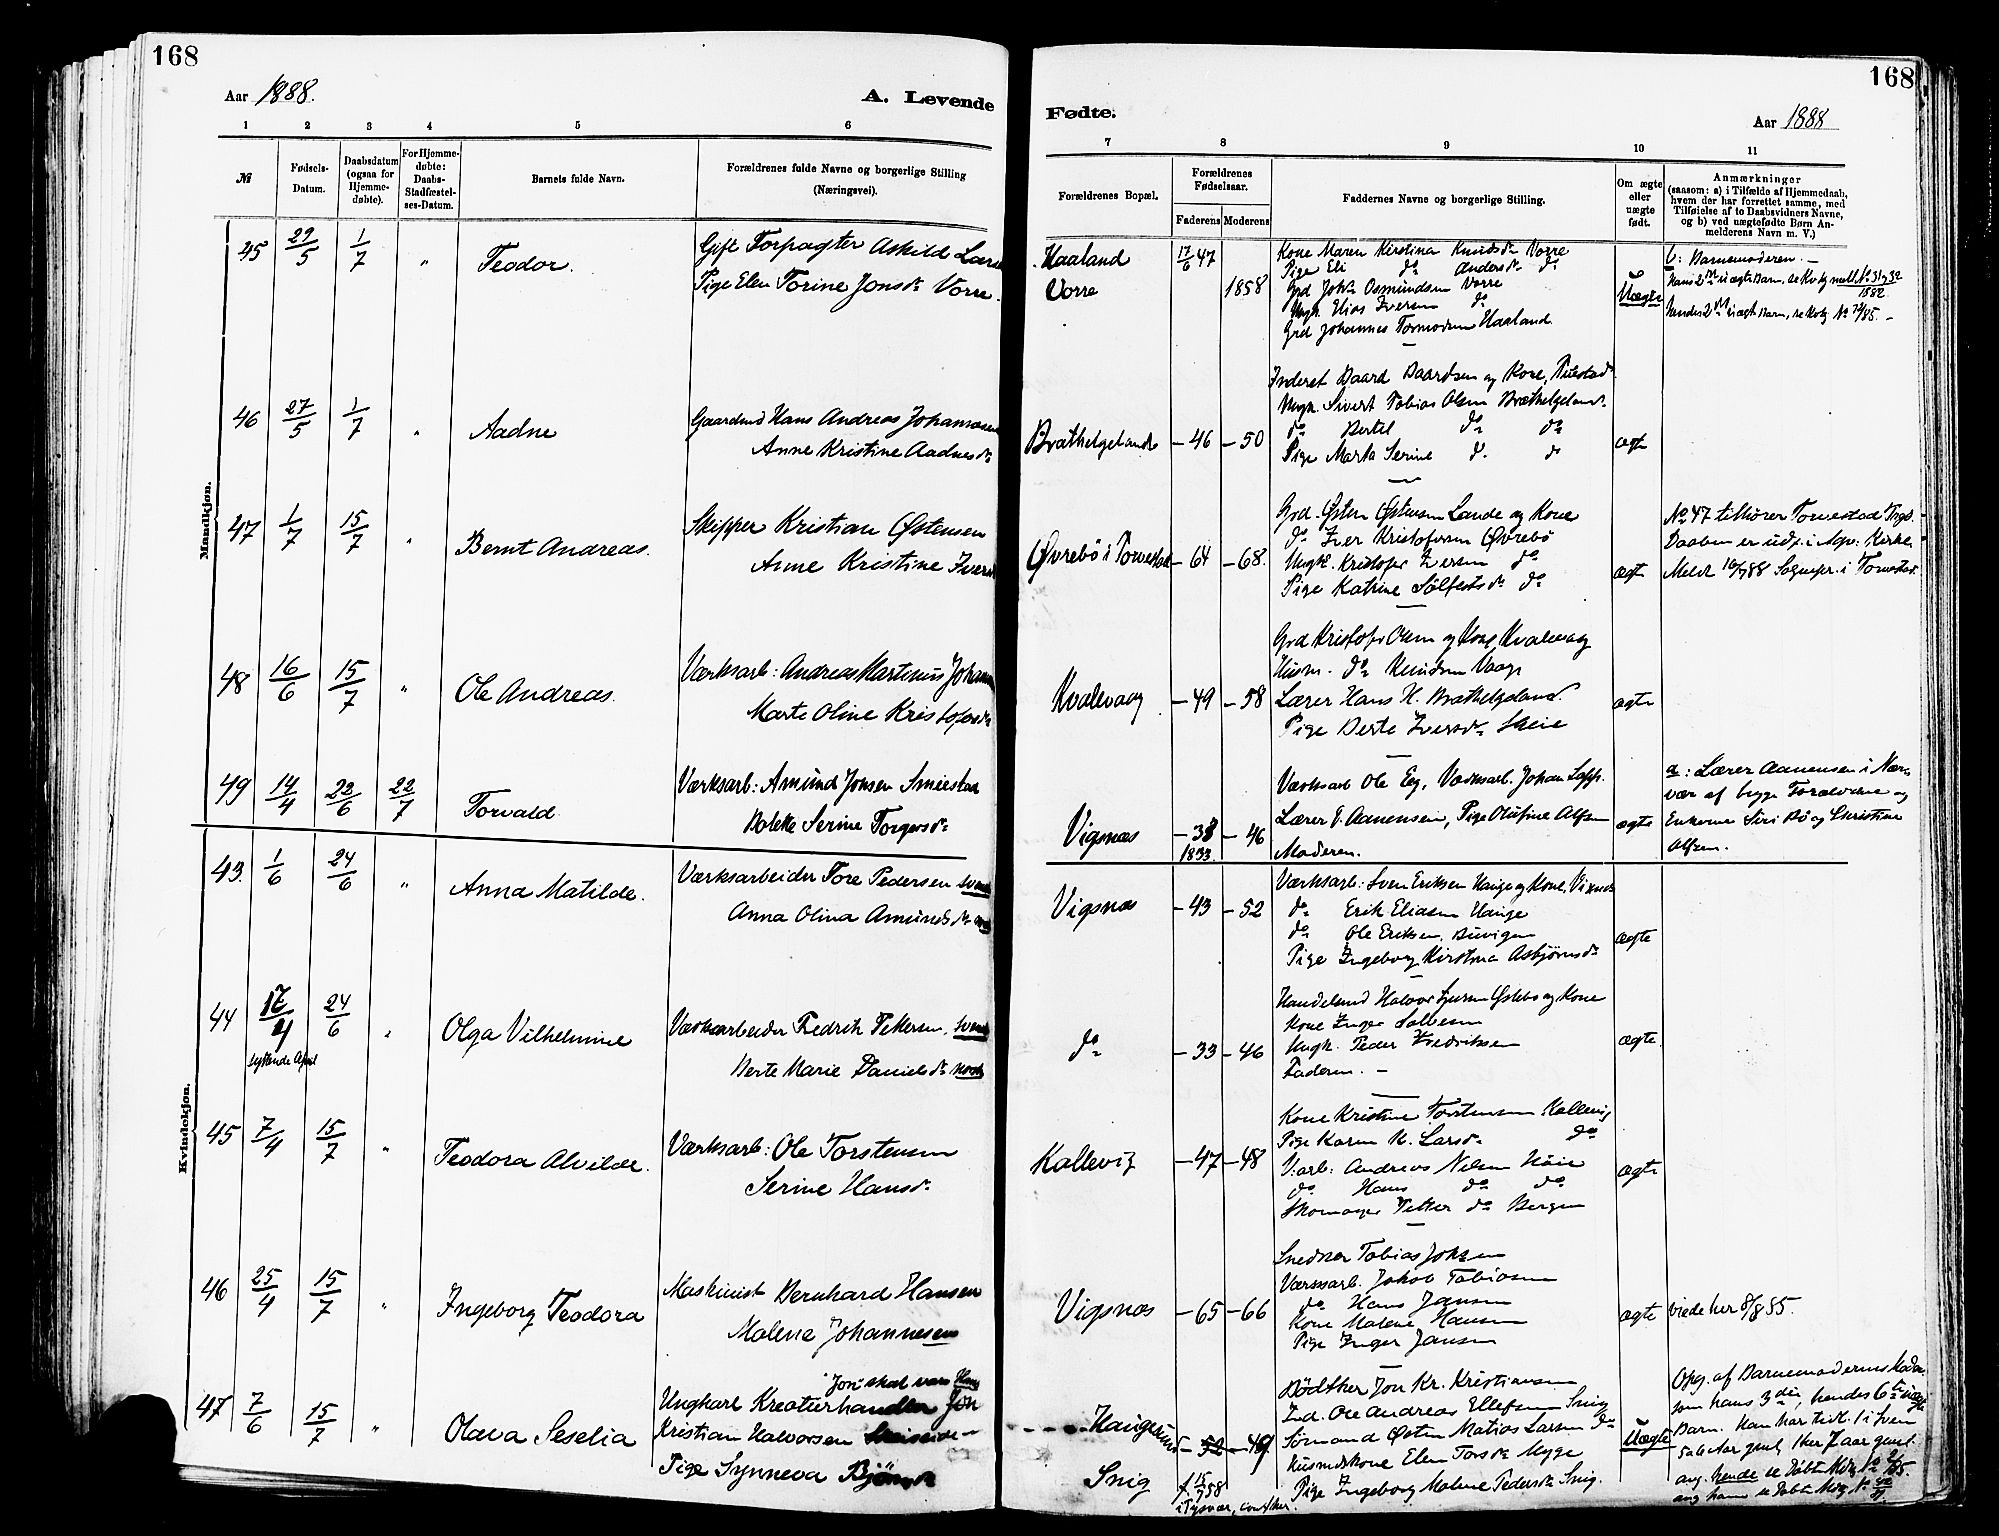 168
168
Aar 1888.
A. Levende
Fødte.
Aar 1888
1 2 3 4 5 6
7 8 9 10 11
№
Fødsels-
Datum.
Daabsdatum
(ogsaa for
Hjemme-
døbte).
For Hjemme-
døbte:
Daabs-
Stadfæstel-
ses-Datum.
Barnets fulde Navn.
Forældrenes fulde Navne og borgerlige Stilling
(Næringsvei).
Forældrenes Bopæl.
Forældrenes
Fødselsaar.
Faderens Moderens
Faddernes Navne og borgerlige Stilling.
Om ægte
eller
uægte
født.
Anmærkninger
(saasom: a) i Tilfælde af Hjemmedaab,
hvem der har forrettet samme, med
Tilføielse af to Daabsvidners Navne,
og b) ved uægtefødte Børn An-
melderens Navn m. V.)
Mandkjøn.
45 29/5 1/7 " Teodor.
Gift Forpagter Askild
Pige Elen Torine Jonsd. Vorre.
Haaland 17/6 47
Vorre 1858
Kone Maren Kirstina Knudsd. Vorre
Pige Eli do Andersd. do
Grd Johs Osmundsen Vorre
Ungk. Elias Iversen do
Grd Johannes Tormodsen Haaland.
Uægte
b: Barnemoderen. —
46 27/5 1/7 " Aadne
Gaardmd Hans Andreas Johannesen
Anne Kristine Aadnesd.
Brathelgeland — 46 — 50
Inderst Baard Baardsen og Kone,
Ungk. Sivert Tobias Olsen Brathelgeland.
do Bertel do do
Pige Marta Serine do do
ægte
47 1/7 15/7 " Bernt Andreas.
Skipper Kristian Østensen
Anne Kristine
Øvrebö i Torvestad — 64 — 68.
Grd. Østen Østensen Lande og Kone
do Iver Kristofersen Øvrebö
Ungk. Kristofer Iversen do
Pige Katrine Sölfestsd. do
ægte
No 47 tilhører Torvestad Prgd.
Daaben er udf. i Kirke.
Meldt 16/7 88 Sognepr. i Torvestad.
48 16/6 15/7 " Ole Andreas.
Værksarb: Andreas Martinus
Marte Oline
Kvalevaag — 49 — 58
Grd Kristofer Olsen og Kone, Kvalevaag
Husm. do Knudsen Vaage
Lærer Hans H. Brathelgeland.
Pige Berte Iversd. Skeie
ægte
49 14/4 22/6 22/7 Torvald.
Værksarb: Amund Jonsen
Bolette Serine Torgersd.
Vigsnæs — 38 — 46
1833.
Værksarb Ole Eeg, Værksarb. Johan
Lærer Aanensen, Pige Olufine Alfsen
Moderen.
ægte
a: Lærer Aanensen i Nær-
vær af begge Forældrene og
Enkerne Siri Bö og Christine
Alfsen.
Kvindekjøn.
43. 1/6 24/6 " Anna Matilde.
Værksarbeider Tore Pedersen
Anna Olina Amundsd.
Vigsnæs — 43 — 52
Værksarb: Sven Eriksen Hauge og Kone,
do Erik Eliasen Hauge
do Ole Eriksen,
Pige Ingeborg Kirstina Asbjörnsd.
ægte
44 17/4 24/6 " Olga Vilhelmine
syttende April
Værksarbeider Fredrik Pettersen,
Berte Marie Danielsd.
do — 33 — 46
Handelsmd Halvor og Kone
Kone Inger
Ungk. Peder Fredriksen
Faderen. —
ægte.
45 7/4 15/7 " Teodora Alvilde.
Værksarb: Ole Torstensen
Serine Hansd.
Kallevig — 47 — 48
Kone Kristine Torstensen Kallevig
Pige Karen K. Larsd. do
V.arb: Andreas Nilsen
do Hans do do
Skomager Petter do Bergen
ægte
46 25/4 15/7 " Ingeborg Teodora
Maskinist Bernhard Hansen
Malena Johannesen
Vigsnæs — 65 — 66
Snedker Tobias
Værksarb. Jakob Tobiasen
do Hans Jansen
Kone Malene Hansen
Pige Inger Jansen
ægte viede her 8/8 85.
47 7/6 15/7 " Olava Seselia
"Jon" skal være
Ungkarl Kreaturhandler Jon
Kristian Halvorsen
Pige Synneva
Haugesund — 52 — 49
Snig f. 15/7 58
i Tysvær,
Bödker Jon Kr. Kristiansen
Ind. Ole Andreas Ellefsen Snig
Sømand Østen Matias Larsen do
Husmdskone Elen Torsd. Myge
Pige Ingeborg Malene Pedersd. Snig.
Uægte
Opg. af Barnemoderens
som hans 3die, hendes 6te
Barn. Han har tidl. 1 i Sven